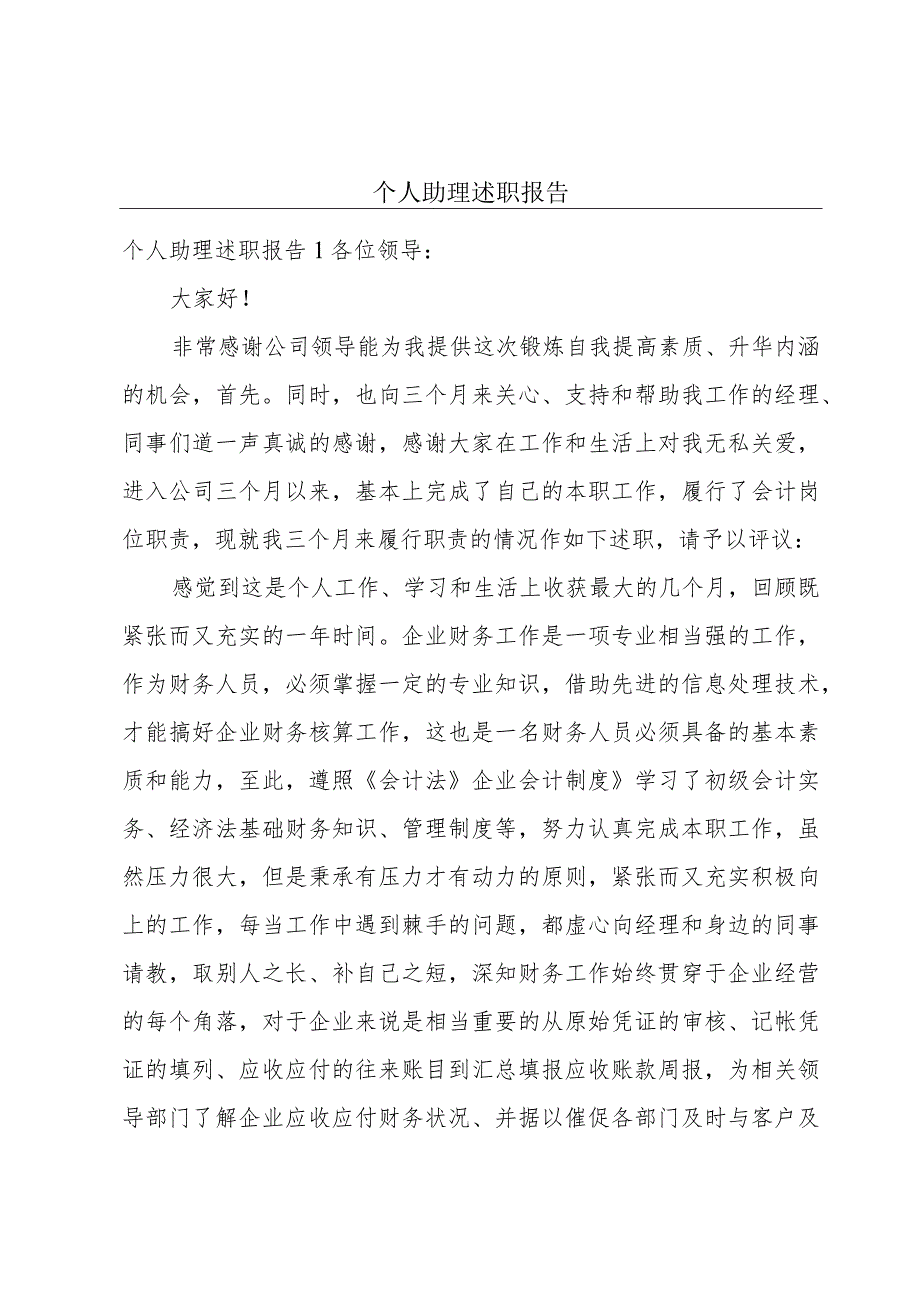 个人助理述职报告
个人助理述职报告1各位领导：
大家好！
非常感谢公司领导能为我提供这次锻炼自我提高素质、升华内涵
的机会，首先。同时，也向三个月来关心、支持和帮助我工作的经理、
同事们道一声真诚的感谢，感谢大家在工作和生活上对我无私关爱，
进入公司三个月以来，基本上完成了自己的本职工作，履行了会计岗
位职责，现就我三个月来履行职责的情况作如下述职，请予以评议：
感觉到这是个人工作、学习和生活上收获最大的几个月，回顾既
紧张而又充实的一年时间。企业财务工作是一项专业相当强的工作，
作为财务人员，必须掌握一定的专业知识，借助先进的信息处理技术，
才能搞好企业财务核算工作，这也是一名财务人员必须具备的基本素
质和能力，至此，遵照《会计法》企业会计制度》学习了初级会计实
务、经济法基础财务知识、管理制度等，努力认真完成本职工作，虽
然压力很大，但是秉承有压力才有动力的原则，紧张而又充实积极向
上的工作，每当工作中遇到棘手的问题，都虚心向经理和身边的同事
请教，取别人之长、补自己之短，深知财务工作始终贯穿于企业经营
的每个角落，对于企业来说是相当重要的从原始凭证的审核、记帐凭
证的填列、应收应付的往来账目到汇总填报应收账款周报，为相关领
导部门了解企业应收应付财务状况、并据以催促各部门及时与客户及